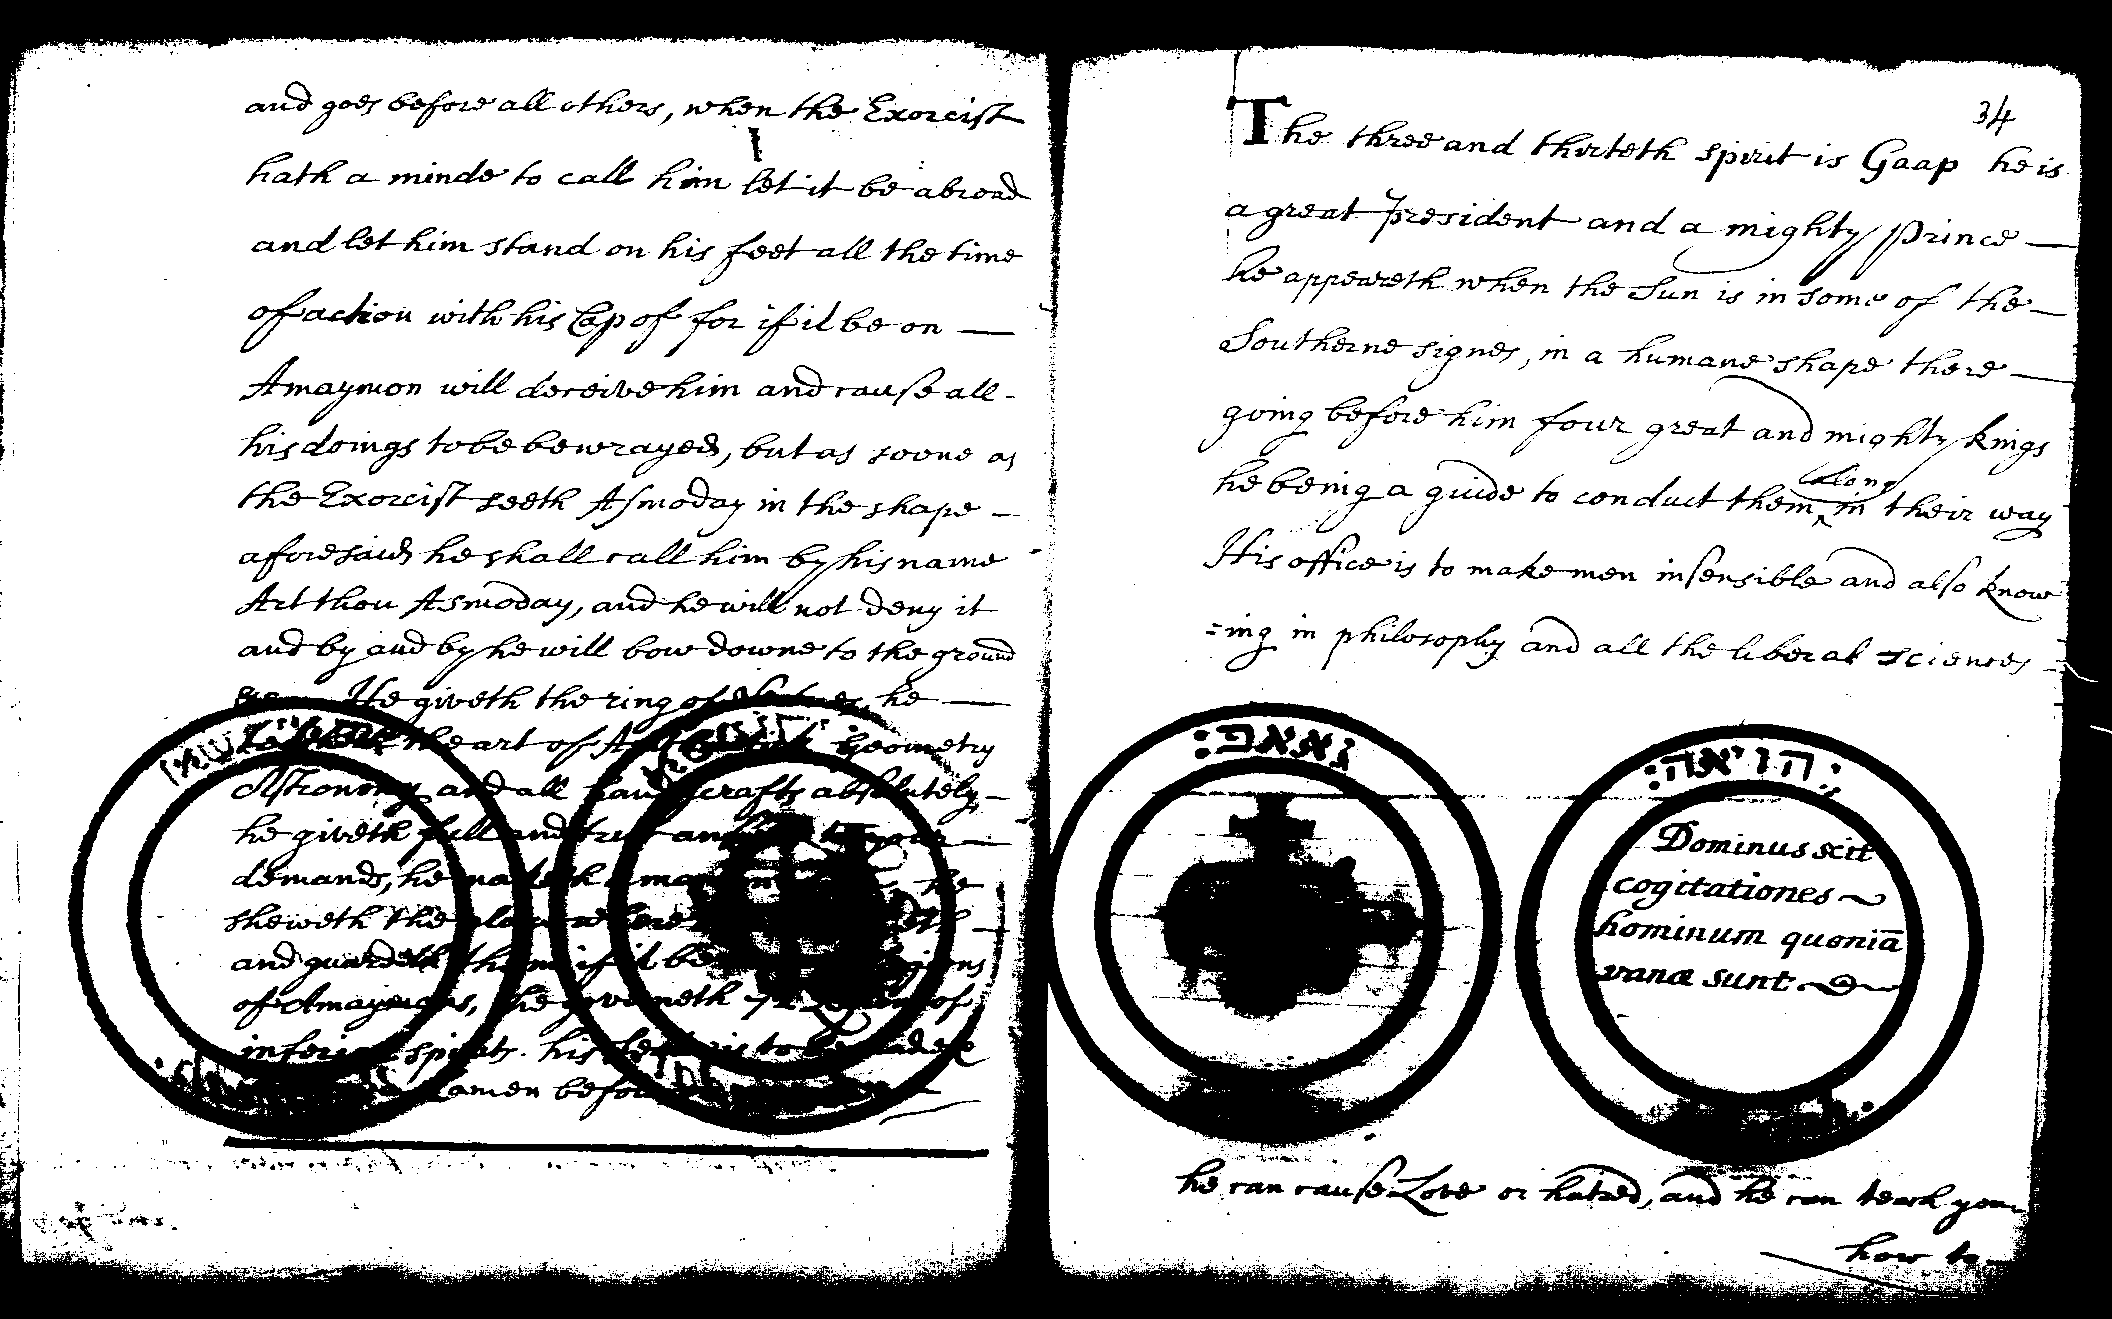 and goes before all others, when the Exorcist
hath a minde to call him let it be abroad
and let him stand on his feet all the time
of action with his Cap of for if it be on
Amaymon will deceive him and cause all
his doings to be bewrayed, but as soone as
the Exorcist seeth Asmoday in the shape
aforesaid he shall call him by his name
Art thou Asmoday, and he will not deny it
and by and by he will bow downe to the ground
He giveth the ring of he
the art of Geometry
Astronomy and all handicrafts absolutely
he giveth full and true
demands, he maketh
sheweth the place where
and guardeth them if it be
of Amaymons, he governeth 72 of
inferior spirits. his is to be made
Lamen before
34
The three and thirteth spirit is Gaap he is
a great President and a mighty Prince
he appeareth when the Sun is in some of the
Southerne signes, in a humane shape there
going before him four great and mighty kings
he being a guide to conduct them along in their way
His office is to make men insensible and also know
=ing in philosophy and all the liberal sciences
גאאפ:
יהויאה:
Dominus scit
cogitationes
hominum quoniā
vanæ sunt
he can cause Love or hatred, and he can teach you
how to